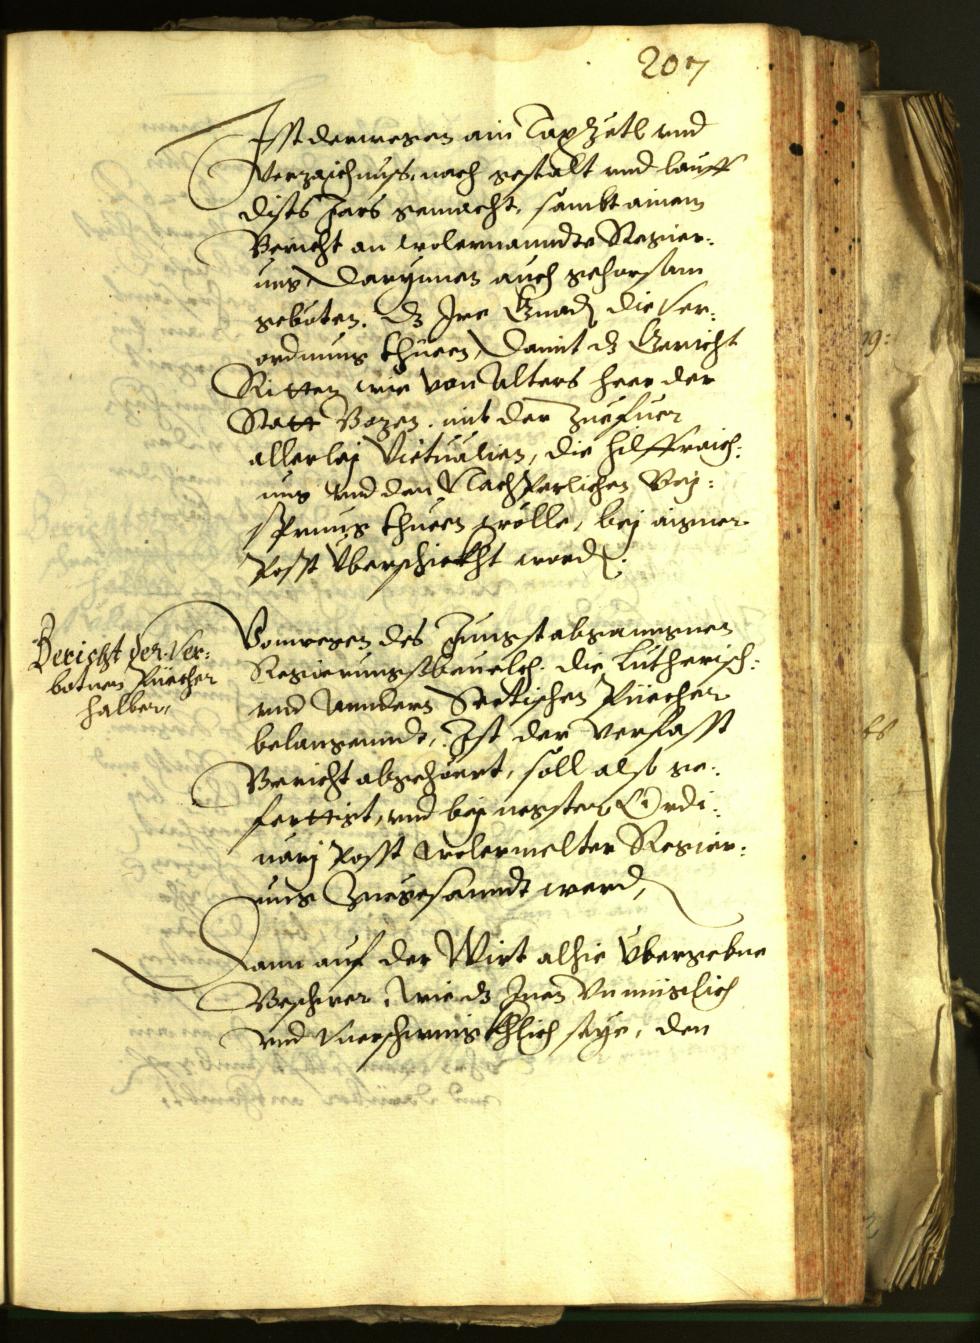 207
Ist derwegen ain Taxzetl und
Verzaichnuss, nach gestalt und lauff
dises Jars gemacht, sambt ainem
Bericht an wolernanndte Regier:
ung, darynnen auch gehorsam
gebeten, dz Ire Gnad die Ver:
ordnung thueen, damit dz Gericht
Ritten wie von Alters heer der
Statt Bozen mit der Zuefuer
allerlej Victualien, die hilffraich:
ung und den Nachperlichen Bej:
sprung thueen wölle, bej aigner
Posst überschickht word.
Bericht der Ver:
botnen Püecher
halber,
Vonwegen des Jungst abganngnen
Regierungsbeuelch, die Lutherisch:
und anndern Sectischen Püecher
belangenndt, Ist der verfasst
Bericht abgehöert, soll also ge:
ferttigt, und bej negster Ordi:
narj Posst wolermelter Regier:
ung Zuegesanndt werd,
Dann auf der Wirt alhie übergebne
Beschwer, wie dz Inen Unmüglich
und Unerschwingkhlich seye, den